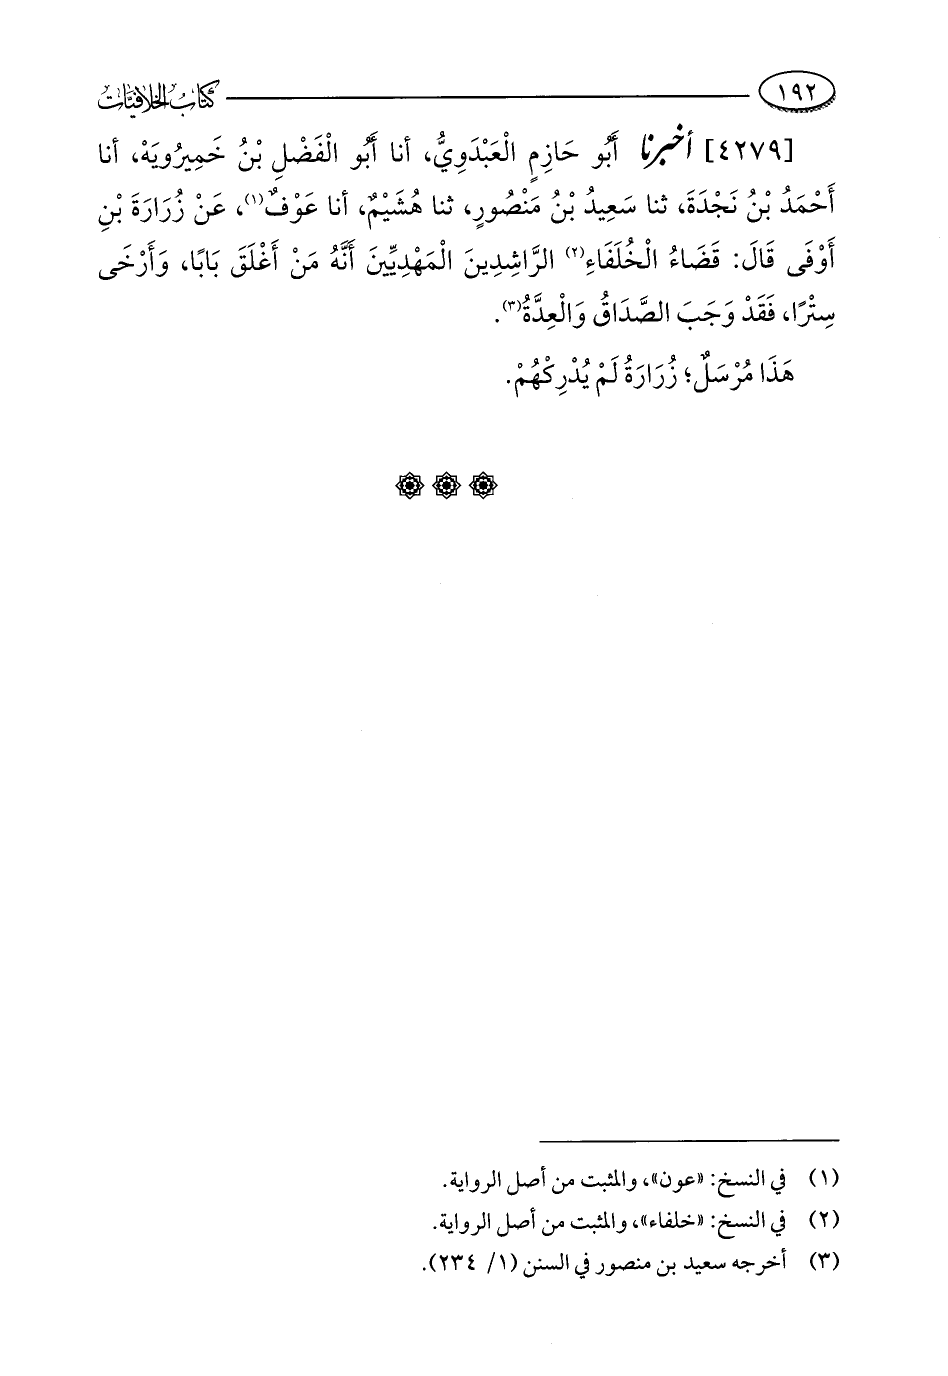 ١٩٢ كتاب الخلافيات
[٤٢٧٩] أخبرنا أَبُو حَازِمٍ الْعَبْدَوِيُّ، أنا أَبُو الْفَضْلِ بْنُ خَمِيرُويَهْ، أنا
أَحْمَدُ بْنُ نَجْدَةَ، ثنا سَعِيدُ بْنُ مَنْصُورٍ، ثنا هُشَيْمٌ، أنا عَوْفٌ(١)، عَنْ زُرَارَةَ بْنِ
أَوْفَى قَالَ: قَضَاءُ الْخُلَفَاءِ(٢) الرَّاشِدِينَ الْمَهْدِيِّينَ أَنَّهُ مَنْ أَغْلَقَ بَابًا، وَأَرْخَى
سِتْرًا، فَقَدْ وَجَبَ الصَّدَاقُ وَالْعِدَّةُ(٣).
هَذَا مُرْسَلٌ؛ زُرَارَةُ لَمْ يُدْرِكْهُمْ.
(١) في النسخ: «عون»، والمثبت من أصل الرواية.
(٢) في النسخ: «خلفاء»، والمثبت من أصل الرواية.
(٣) أخرجه سعيد بن منصور في السنن (١/ ٢٣٤).